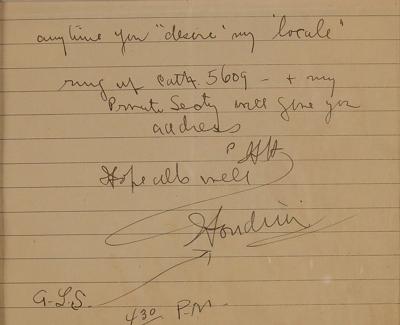 anytime you "desire" my 'locale'
ring up Cath. 5609 - + my
Private Secty will give you
address
HH
Hope all's well
Houdini
G.L.S.
4 30 P.M.